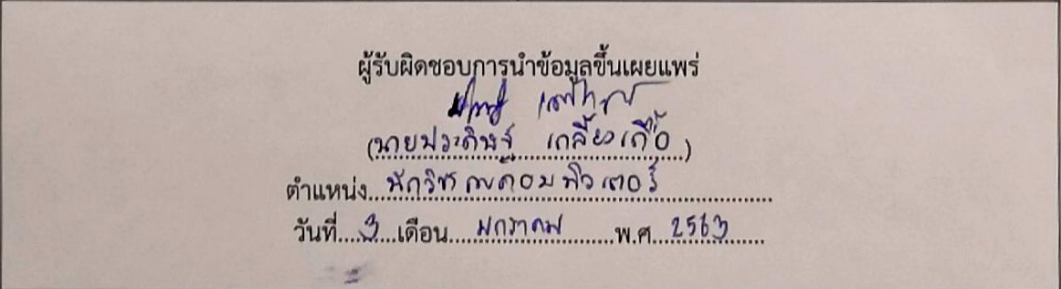 ผู้รับผิดชอบการนำข้อมูลขึ้นเผยแพร่
(นายประดิษฐ์ เกลี้ยงเกื้อ)
ตำแหน่ง นักวิชาการคอมพิวเตอร์
วันที่ 3 เดือน มกราคม พ.ศ. 2563